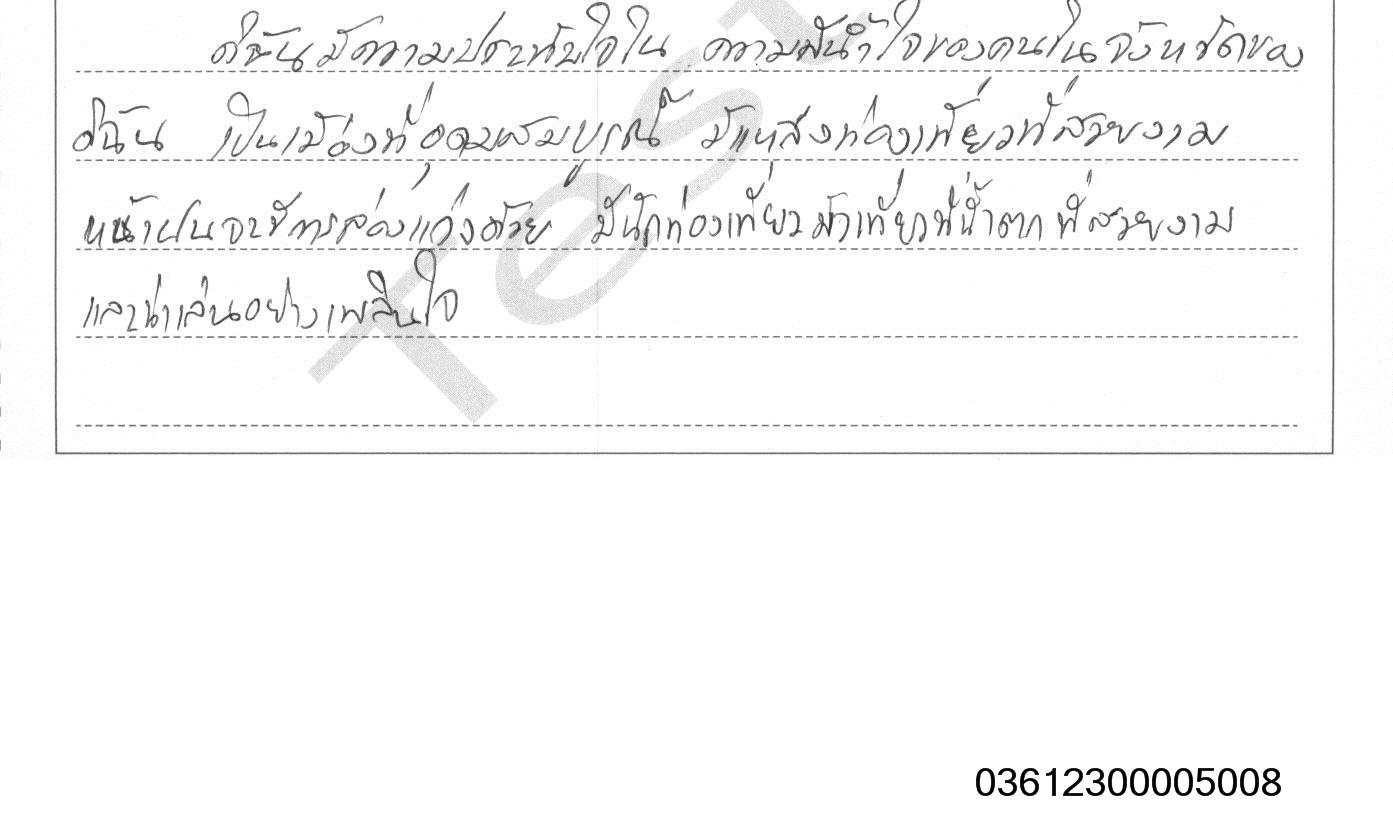 ดิฉันมีความประทับใจใน ความมีน้ำใจของคนในจังหวัดของ
ดิฉัน เป็นเมืองที่อุดมสมบูรณ์ มีแหล่งท่องเที่ยวที่สวยงาม
หน้าฝนจะมีการล่องแก่งด้วย มีนักท่องเที่ยวมาเที่ยวที่น้ำตก ที่สวยงาม
และน่าเล่นอย่างเพลินใจ
Test
03612300005008